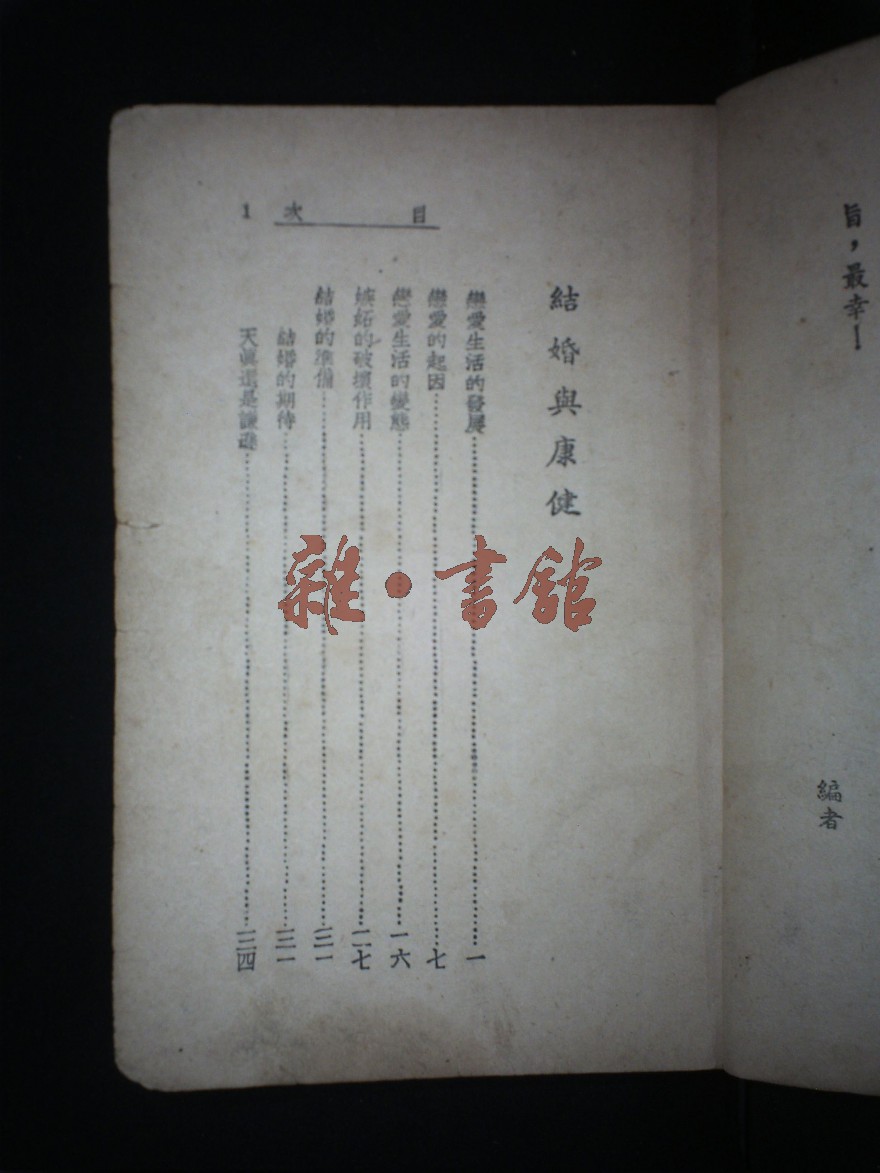 旨，最幸！
編者
目次 1
結婚與康健
戀愛生活的發展……一
戀愛的起因……七
戀愛生活的變態……一六
嫉妬的破壞作用……二七
結婚的準備……三一
結婚的期待……三一
天眞還是謙遜……三四
雜·書舘